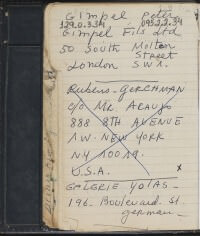 Gimpel Peter
Gimpel Fils Ltd
50 South Molton
Street
London SW1.
Rubens-GERCHMAN
c/o Mr. ARAUJO
888 8TH AVENUE
NEW YORK
NY 10019.
U.S.A.
x
GALERIE YOLAS -
196 - Boulevard St.
german -